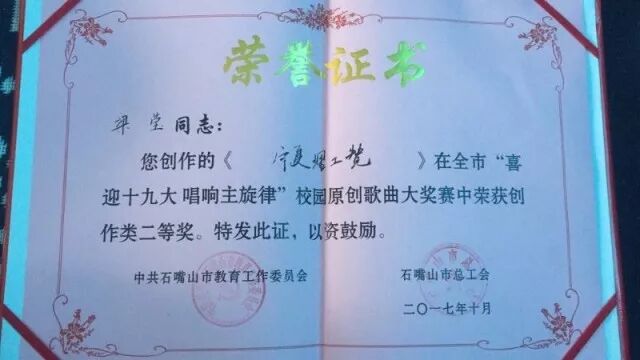 荣誉证书
梁莹同志：
您创作的《宁夏理工赞》在全市“喜
迎十九大 唱响主旋律”校园原创歌曲大奖赛中荣获创
作类二等奖。特发此证，以资鼓励。
中共石嘴山市教育工作委员会
石嘴山市总工会
二〇一七年十月